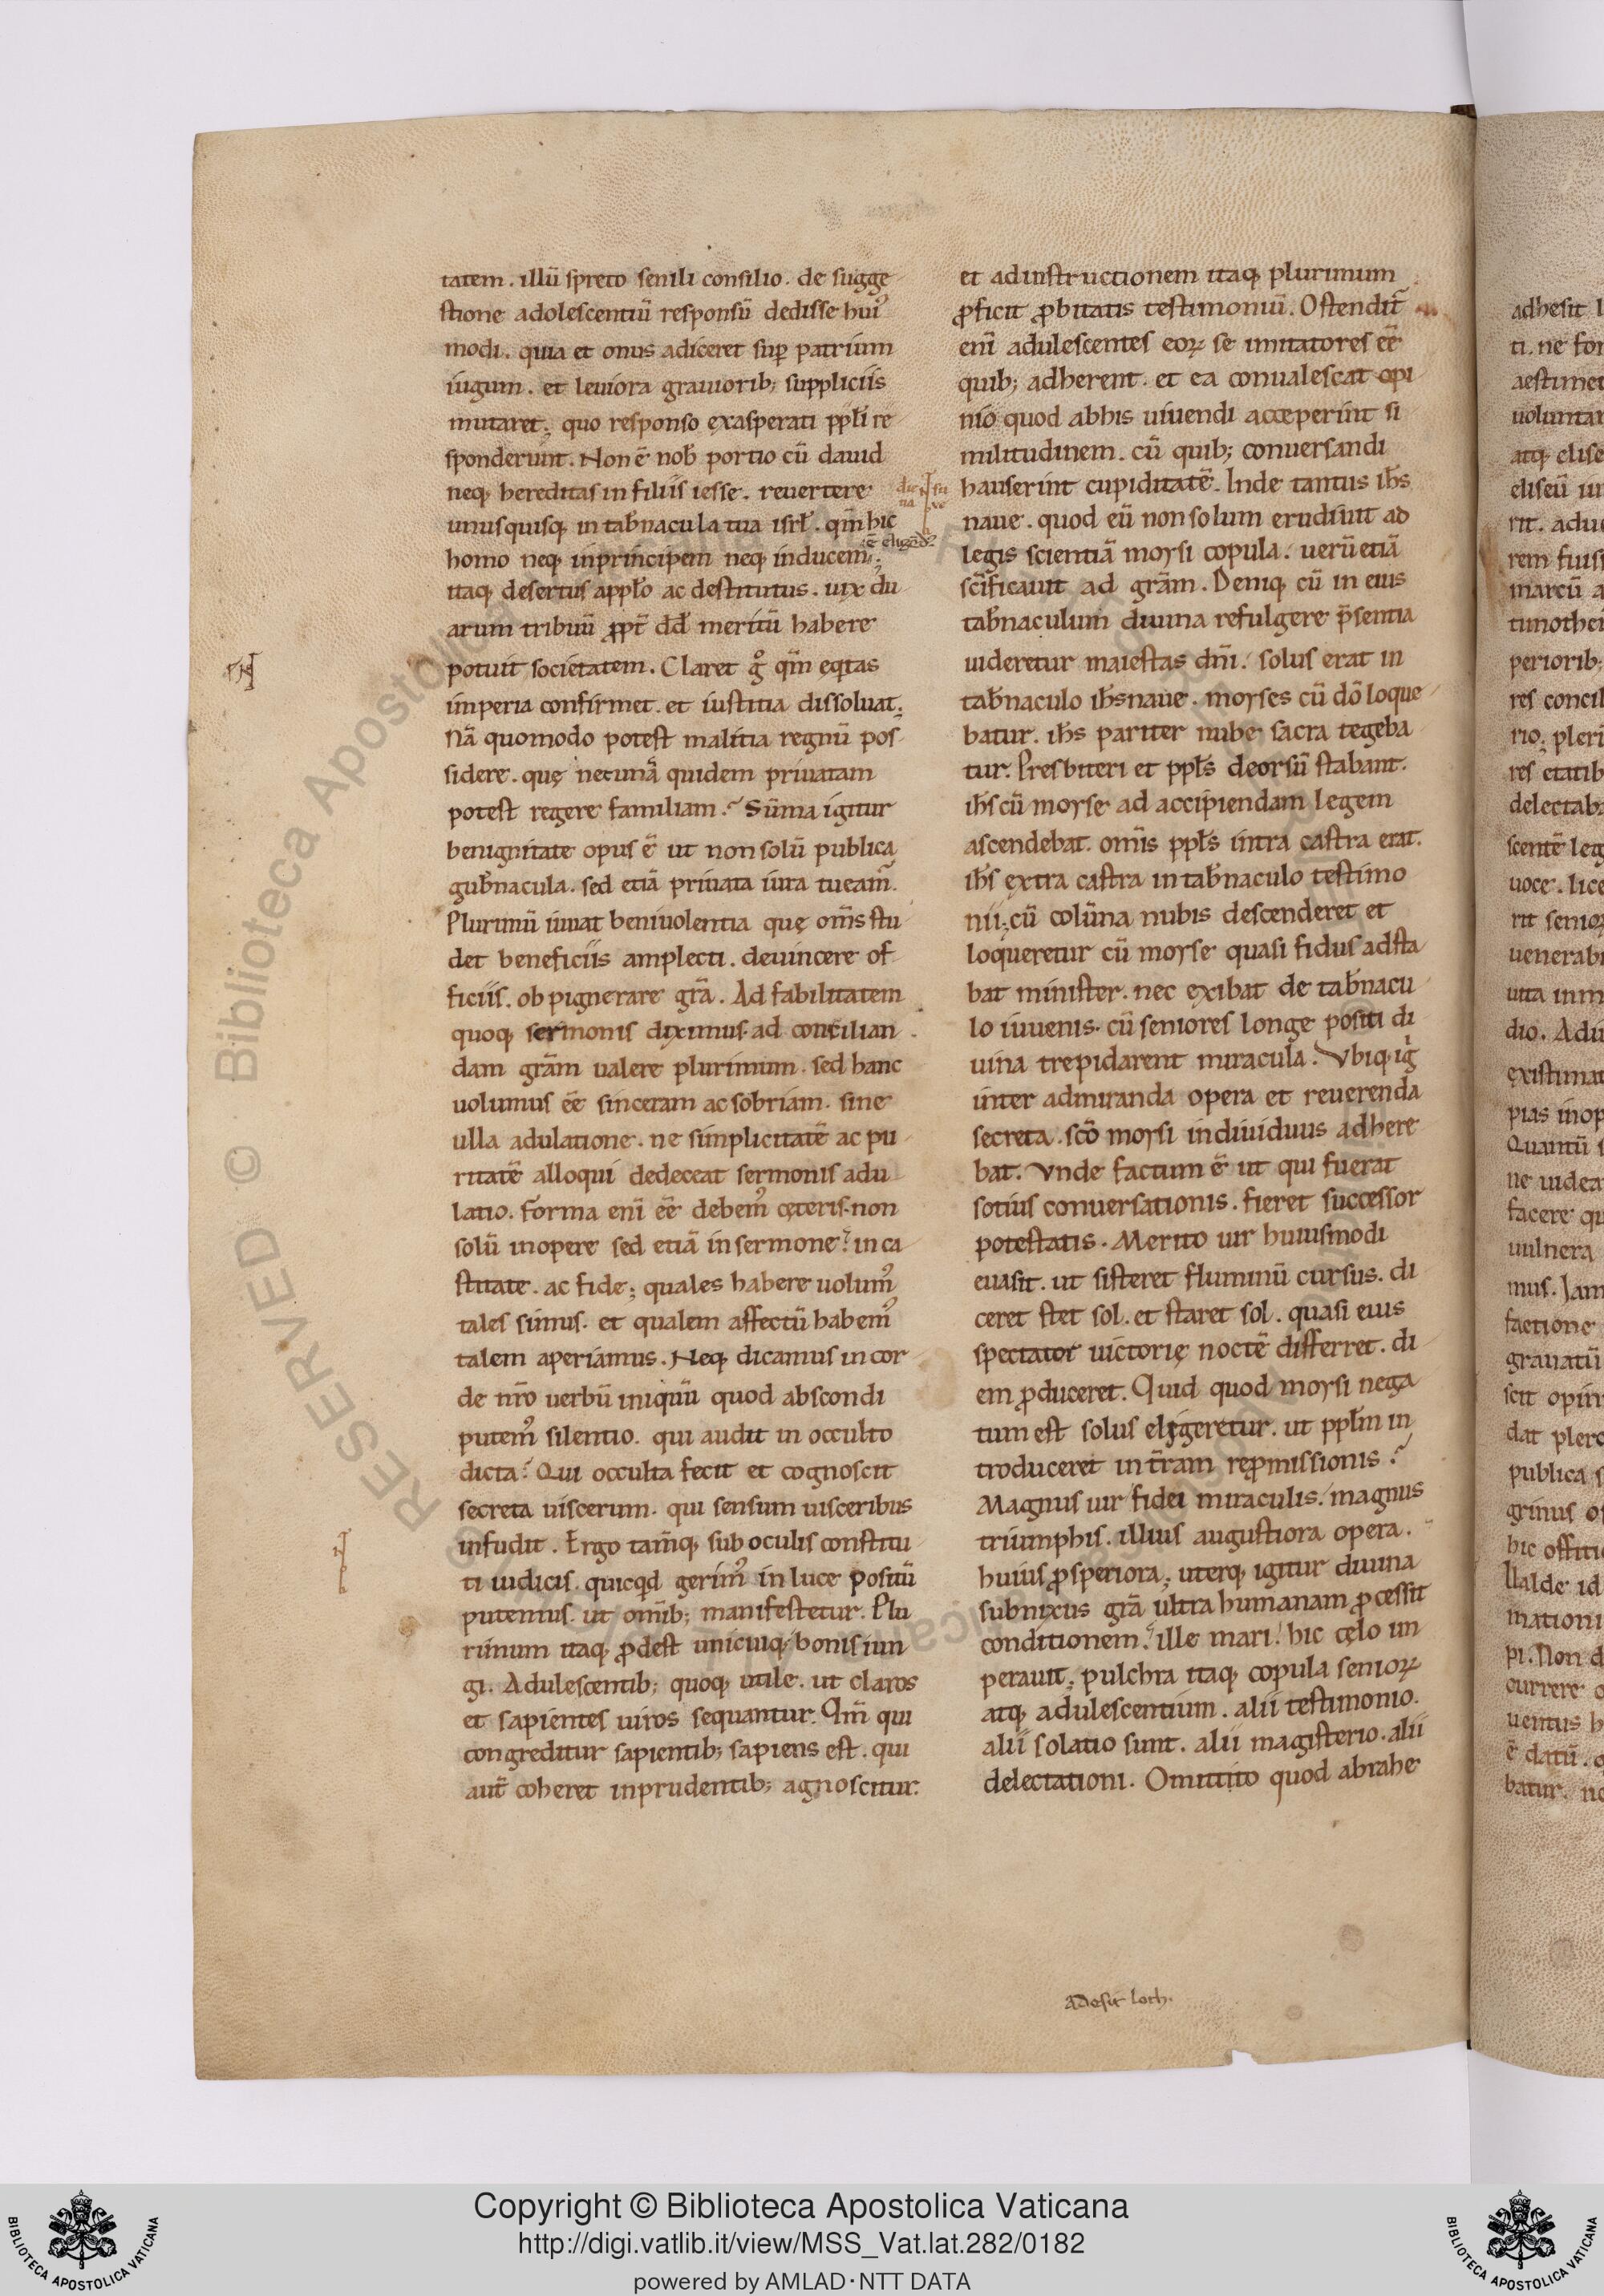 tatem. illū spreto senili consilio. de sugge
stione adolescentiū responsū dedisse hui᾽
modi. quia et onus adiceret suꝑ patrium
iugum. et leuiora grauiorib; suppliciis
mutaret; quo responso exasperati ppłi re
sponderunt. Non ē nob̄ portio cū dauid
neq; hereditas in filiis iesse. reuertere
unusquisq; in tab̄nacula tua isrł. qm̄ hic
homo neq; in principem neq; in ducem;
ē eligēd᾽
itaq; desertus a ppło ac destitutus. uix du
arum tribuū ꝓpt̄ dd̄ meritū habere
potuit societatem. Claret g° qm̄ ęqͥtas
imperia confirmet. et iustitia dissoluat;
Nā quomodo potest malitia regnū pos
sidere. quę nec unā quidem priuatam
potest regere familiam? Sūma igitur
benignitate opus ē ut non solū publica
gub̄nacula. sed etiā priuata iura tueam̄.
Plurimū iuuat beniuolentia quę om̄s stu
det beneficiis amplecti. deuincere of
ficiis. ob pignerare grā. Ad fabilitatem
quoq; sermonis diximus ad concilian
dam grām ualere plurimum. sed hanc
uolumus eē sinceram ac sobriam. sine
ulla adulatione. ne simplicitatē ac pu
ritatē alloqui dedeceat sermonis adu
latio. Forma eni̅ eē debem᾽ cęteris. non
solū in opere sed etiā in sermone. in ca
stitate. ac fide; quales habere uolum᾽
tales simus. et qualem affectū habem᾽
talem aperiamus. Neq; dicamus in cor
de nr̄o uerbū iniquū quod abscondi
putem᾽ silentio. qui audit in occulto
dicta? Qui occulta fecit et cognoscit
secreta uiscerum. qui sensum uisceribus
infudit. Ergo tam̄q; sub oculis constitu
ti iudicis. quicqd gerim᾽ in luce positū
putemus. ut omīb; manifestetur. Plu
rimum itaq; ꝓdest unicuiq; bonis iun
gi. Adulescentib; quoq; utile. ut claros
et sapientes uiros sequantur. Qm̄ qui
congreditur sapientib; sapiens est. qui
aut̄ coheret inprudentib; agnoscitur.
et ad instructionem itaq; plurimum
ꝓficit ꝓbitatis testimoniū. Ostendit̄
eni̅ adulescentes eoꝝ se imitatores eē
quib; adherent. et ea conualescat opi
nio quod ab his uiuendi acceperint si
militudinem. cū quib; conuersandi
hauserint cupiditatē. Inde tantus ih̄s
naue. quod eū non solum erudiuit ad
legis scientiā moysi copula. uerū etiā
sc̄ificauit ad grām. Deniq; cū in eius
tab̄naculum diuina refulgere p̄sentia
uideretur maiestas dn̄i. solus erat in
tab̄naculo ih̄s naue. moyses cū dō loque
batur. ih̄s pariter nube sacra tegeba
tur. Presbiteri et ppłs deorsū stabant.
ih̄s cū moyse ad accipiendam legem
ascendebat. om̄is ppłs intra castra erat.
ih̄s extra castra in tab̄naculo testimo
nii; cū colūna nubis descenderet et
loqueretur cū moyse quasi fidus adsta
bat minister. nec exibat de tab̄nacu
lo iuuenis. cū seniores longe positi di
uina trepidarent miracula. Vbiq; ig̅
inter admiranda opera et reuerenda
secreta. scō moysi indiuiduus adhere
bat. Vnde factum ē ut qui fuerat
sotius conuersationis. fieret successor
potestatis. Merito uir huiusmodi
euasit. ut sisteret fluminū cursus. di
ceret stet sol. et staret sol. quasi eius
spectator uictorię noctē differret. di
em ꝓduceret. Quid quod moysi nega
tum est solus eligeretur. ut ppłm in
troduceret in t̄ram reꝓmissionis?
Magnus uir fidei miraculis. magnus
triumphis. illius augustiora opera.
huius ꝓsperiora; uterq; igitur diuina
subnixus grā ultra humanam ꝓcessit
conditionem. ille mari. hic cęlo im
perauit; pulchra itaq; copula senioꝝ
atq; adulescentium. alii testimonio.
alii solatio sunt. alii magisterio. alii
delectationi. Omittito quod abrahe
Adesit loth.
adhesit l
ti. ne for
aestimet
uoluntar
atq; elise
eliseū
rit. adue
rem fuis
marcū a
timothei
periorib;
res concil
rio; pleri
res etatib
delectab
scentē leg
uoce. lice
rit senioꝝ
uenerabi
uita inm
dio. Adu
existimat
pias inop
Quantū s
ne uidea
facere qu
uulnera
mus. Jam
factione
grauatū
scit opin
dat plero
publica s
grinus
hic offiti
Ualde id
mationi
pi. Non d
currere
uentus h
ē datū.
batur. ne
RESERVED © Biblioteca Apostolica
Copyright © Biblioteca Apostolica Vaticana
http://digi.vatlib.it/view/MSS_Vat.lat.282/0182
powered by AMLAD·NTT DATA
BIBLIOTECA APOSTOLICA VATICANA
BIBLIOTECA APOSTOLICA VATICANA